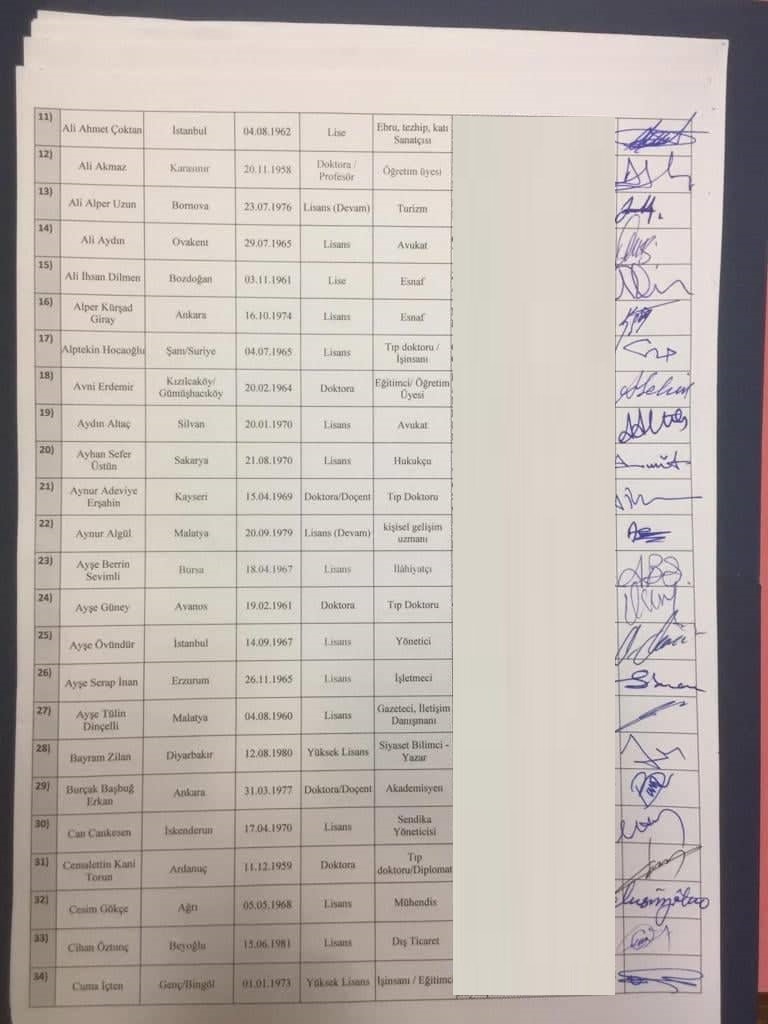 11) Ali Ahmet Çoktan İstanbul 04.08.1962 Lise Ebru, tezhip, katı Sanatçısı
12) Ali Akmaz Karasınır 20.11.1958 Doktora / Profesör Öğretim üyesi
13) Ali Alper Uzun Bornova 23.07.1976 Lisans (Devam) Turizm
14) Ali Aydın Ovakent 29.07.1965 Lisans Avukat
15) Ali İhsan Dilmen Bozdoğan 03.11.1961 Lise Esnaf
16) Alper Kürşad Giray Ankara 16.10.1974 Lisans Esnaf
17) Alptekin Hocaoğlu Şam/Suriye 04.07.1965 Lisans Tıp doktoru / İşinsanı
18) Avni Erdemir Kızılcaköy/ Gümüşhacıköy 20.02.1964 Doktora Eğitimci/ Öğretim Üyesi
19) Aydın Altaç Silvan 20.01.1970 Lisans Avukat
20) Ayhan Sefer Üstün Sakarya 21.08.1970 Lisans Hukukçu
21) Aynur Adeviye Erşahin Kayseri 15.04.1969 Doktora/Doçent Tıp Doktoru
22) Aynur Algül Malatya 20.09.1979 Lisans (Devam) kişisel gelişim uzmanı
23) Ayşe Berrin Sevimli Bursa 18.04.1967 Lisans İlâhiyatçı
24) Ayşe Güney Avanos 19.02.1961 Doktora Tıp Doktoru
25) Ayşe Övündür İstanbul 14.09.1967 Lisans Yönetici
26) Ayşe Serap İnan Erzurum 26.11.1965 Lisans İşletmeci
27) Ayşe Tülin Dinçelli Malatya 04.08.1960 Lisans Gazeteci, İletişim Danışmanı
28) Bayram Zilan Diyarbakır 12.08.1980 Yüksek Lisans Siyaset Bilimci - Yazar
29) Burçak Başbuğ Erkan Ankara 31.03.1977 Doktora/Doçent Akademisyen
30) Can Cankesen İskenderun 17.04.1970 Lisans Sendika Yöneticisi
31) Cemalettin Kani Torun Ardanuç 11.12.1959 Doktora Tıp doktoru/Diplomat
32) Cesim Gökçe Ağrı 05.05.1968 Lisans Mühendis
33) Cihan Öztunç Beyoğlu 15.06.1981 Lisans Dış Ticaret
34) Cuma İçten Genç/Bingöl 01.01.1973 Yüksek Lisans İşinsanı / Eğitimc